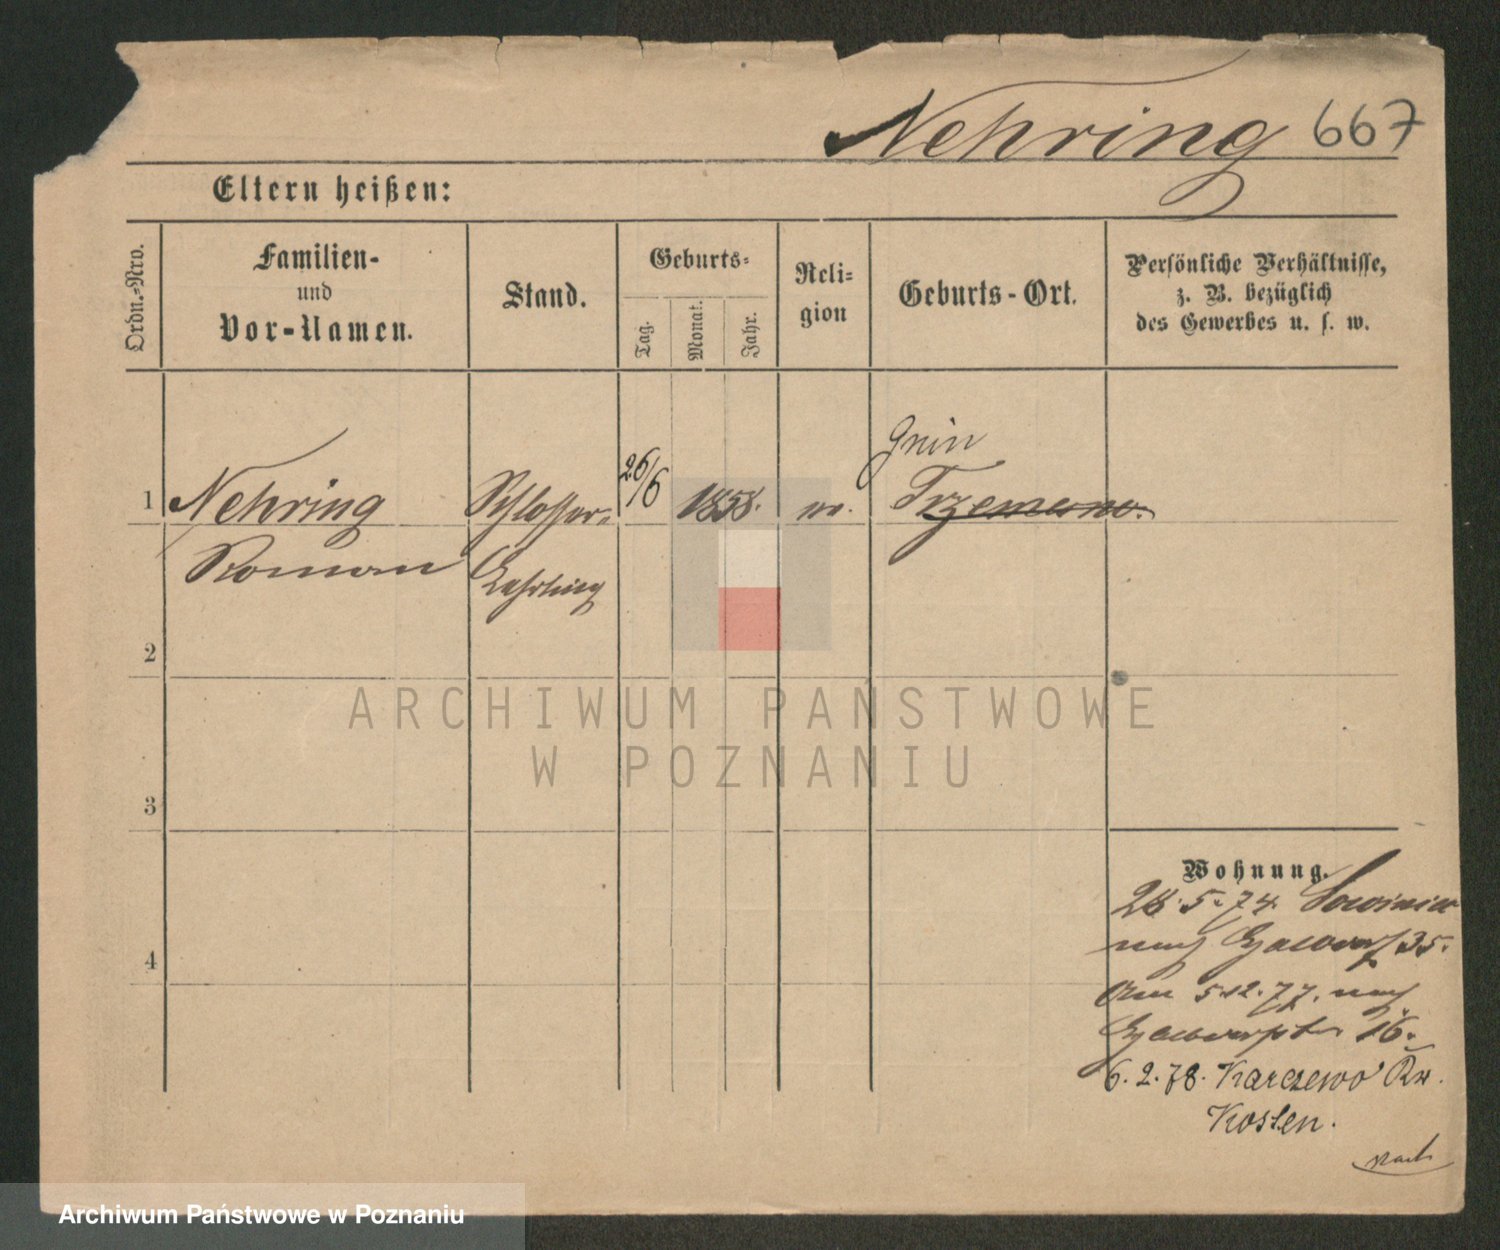 Nehring 667
Eltern heißen:
Ordn.-Nro.
Familien-
und
Vor-Namen.
Stand.
Geburts-
Tag.
Monat.
Jahr.
Reli-
gion
Geburts-Ort.
Persönliche Verhältnisse,
z. B. bezüglich
des Gewerbes u. s. w.
Gnin
1 Nehring Schlosser- 26/6 1858. Trzemeszno.
Roman Lehrling
2
3
4
Wohnung.
28.5.74.
nach 35.
Am 5.12.77. nach
16.
6.2.78. Karczewo Kr.
Kosten.
ARCHIWUM PAŃSTWOWE
W POZNANIU
Archiwum Państwowe w Poznaniu